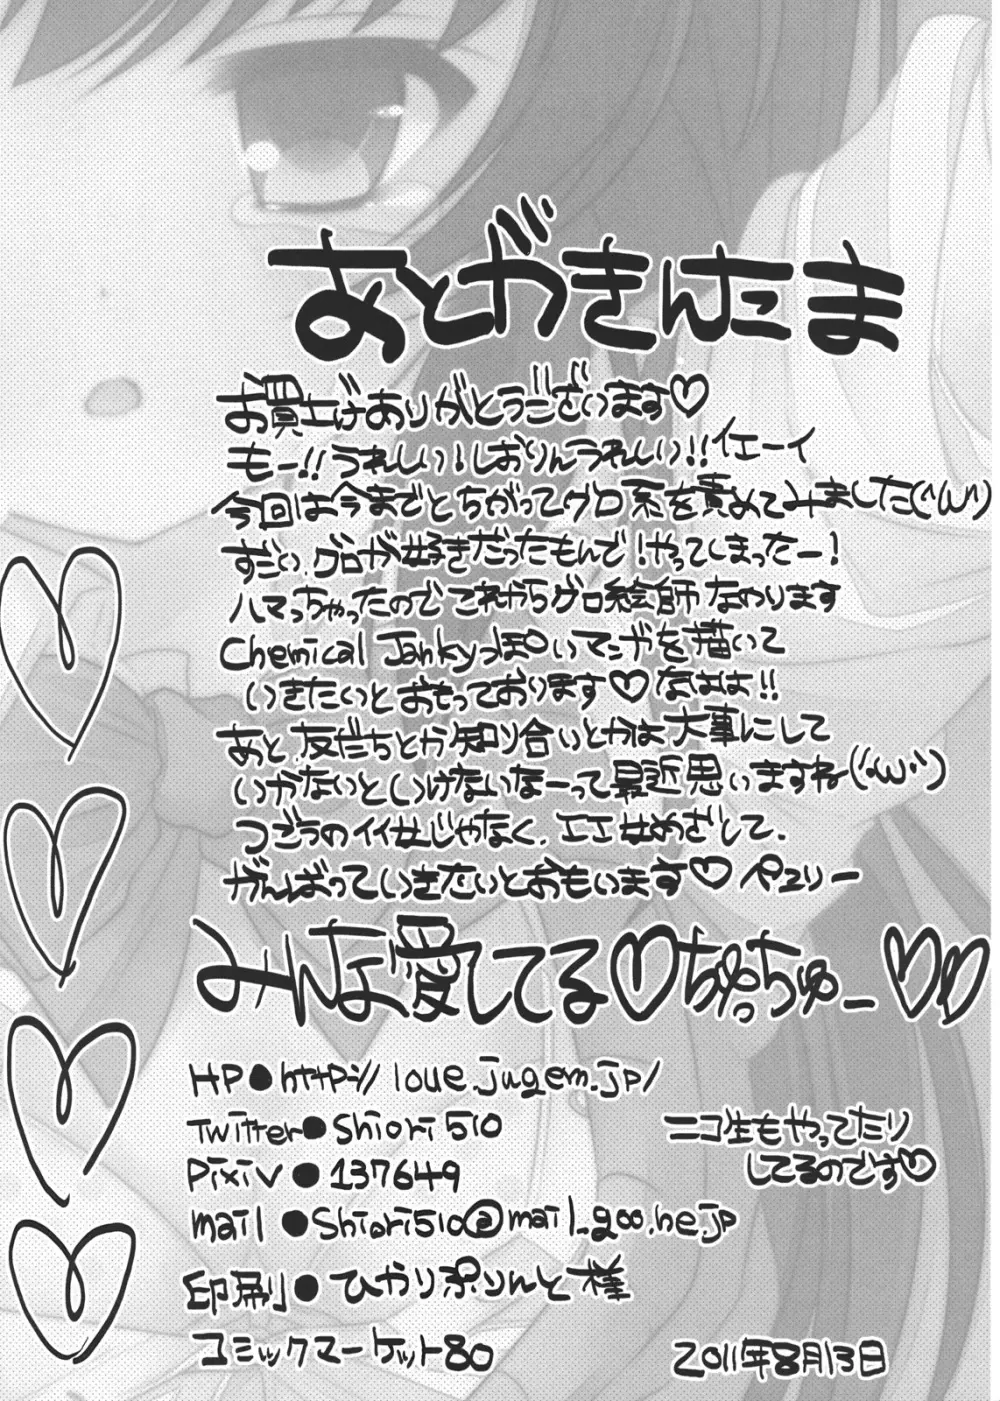 あとがきんたま
お買上げありがとうございます♡
もー!!うれしい!しおりんうれしい!!イエーイ
今回は今までとちがってグロ系を責めてみました(´ω`)
すごい、グロが好きだったもんで!やってしまったー!
ハマっちゃったのでこれからグロ絵師なのります
Chemical Jankyっぽいマンガを描いて
いきたいとおもっております♡なはは!!
あと、友だちとか知り合いとかは大事にして
いかないといけないなーって最近思いますね(´・ω・`)
つごうのイイ女じゃなく、エエ女めざして、
がんばっていきたいとおもいます♡ペユリー
みんな愛してる♡ちゅっちゅー♡♡
HP●http://loue.jugem.jp/
Twitter●Shiori510
ニコ生もやってたり
してるのです♡
Pixiv●137649
mail●Shiori510@mail.goo.ne.jp
印刷●ひかりぷりんと様
コミックマーケット80
2011年8月13日